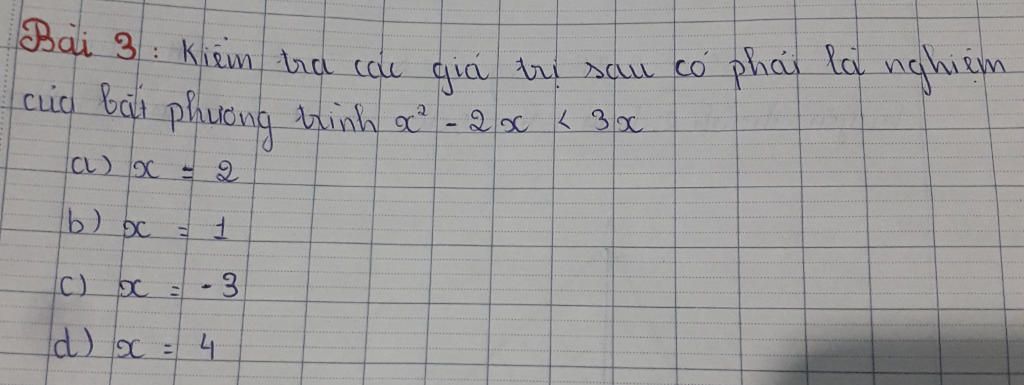 Bài 3 : Kiểm tra các giá trị sau có phải là nghiệm
của bất phương trình x² - 2x < 3x
a) x = 2
b) x = 1
c) x = -3
d) x = 4